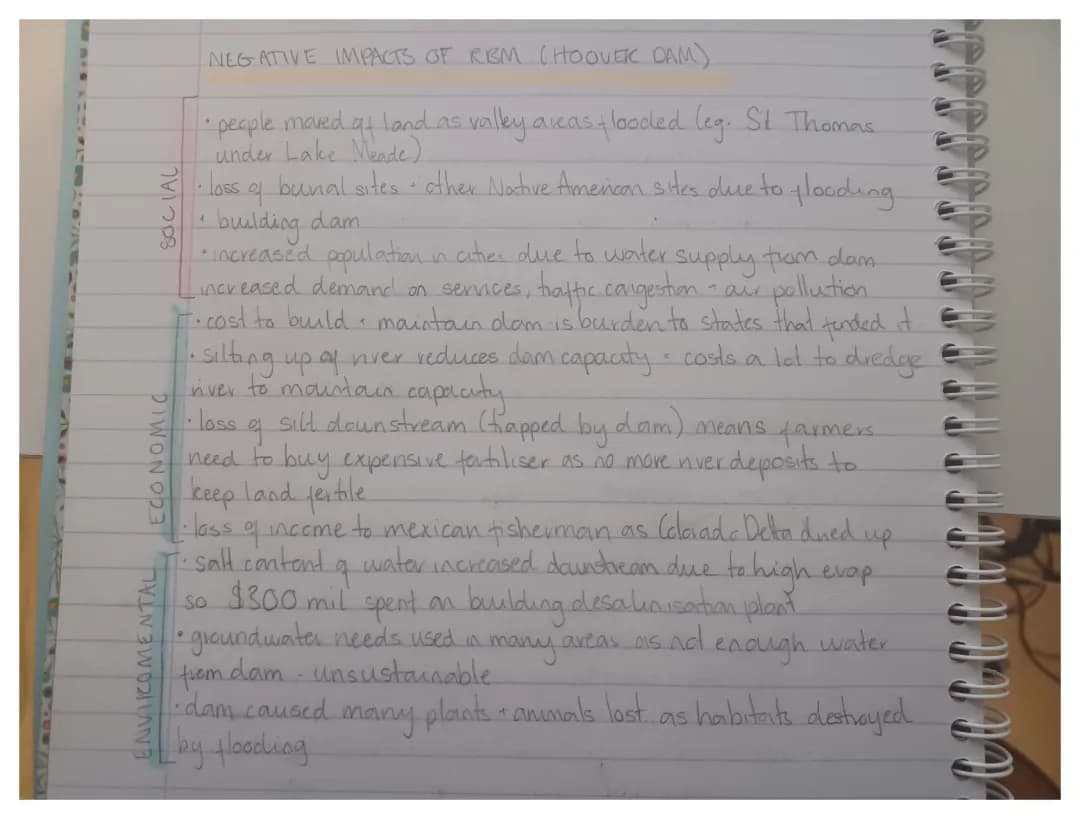 NEGATIVE IMPACTS OF RBM (HOOVER DAM)
SOCIAL
• people moved of land as valley areas flooded (eg. St Thomas
under Lake Meade)
• loss of burial sites + other Native American sites due to flooding
• building dam
• increased population in cities due to water supply from dam
increased demand on services, traffic congestion - air pollution
ECONOMIC
• cost to build + maintain dam is burden to states that funded it
• silting up of river reduces dam capacity • costs a lot to dredge
river to mountain capacity
• loss of silt downstream (trapped by dam) means farmers
need to buy expensive fertiliser as no more river deposits to
keep land fertile
• loss of income to mexican fisherman as Colorado Delta dried up
ENVIROMENTAL
• salt content of water increased downstream due to high evap
so $300 mil spent on building desalinisation plant
• groundwater needs used in many areas as not enough water
from dam - unsustainable
• dam caused many plants + animals lost as habitats destroyed
by flooding